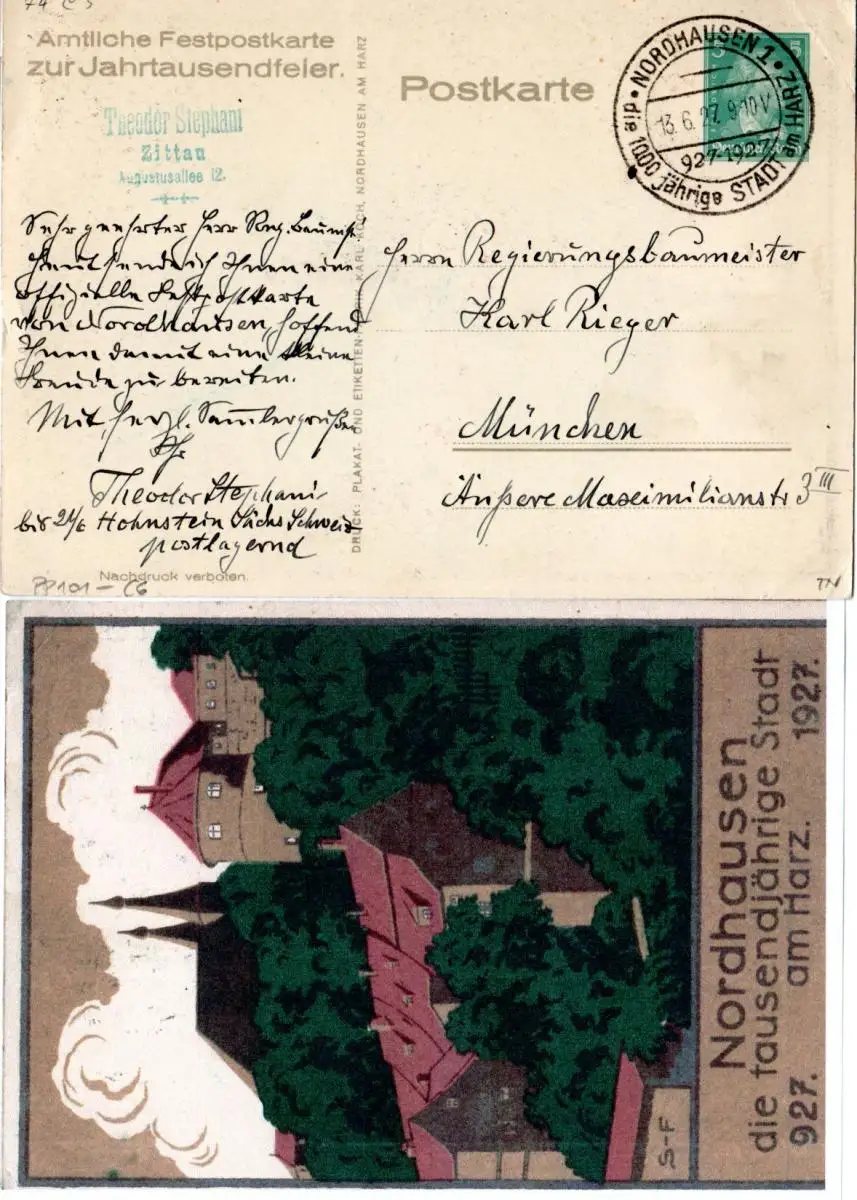 Amtliche Festpostkarte
zur Jahrtausendfeier.
Theodor Stephani
Zittau
Augustusallee 12.
Postkarte
NORDHAUSEN 1
13.6.27. 9-10 V
927-1927
die 1000 jährige STADT am HARZ
Sehr geehrter Herr Reg. Baumstr.
Heut sende ich Ihnen eine
offizielle Festpostkarte
von Nordhausen, hoffend
Ihnen damit eine kleine
Freude zu bereiten.
Mit herzl. Sammlergrüßen
Ihr
Theodor Stephani
bis 24/6 Hohnstein Sächs Schweiz
postlagernd
Nachdruck verboten.
PP101-C6
DRUCK: PLAKAT- UND ETIKETTEN- KARL KOCH, NORDHAUSEN AM HARZ
Herrn Regierungsbaumeister
Karl Rieger
München
Äußere Maximilianstr 3 III
Nordhausen
die tausendjährige Stadt
927. am Harz. 1927.
S-F